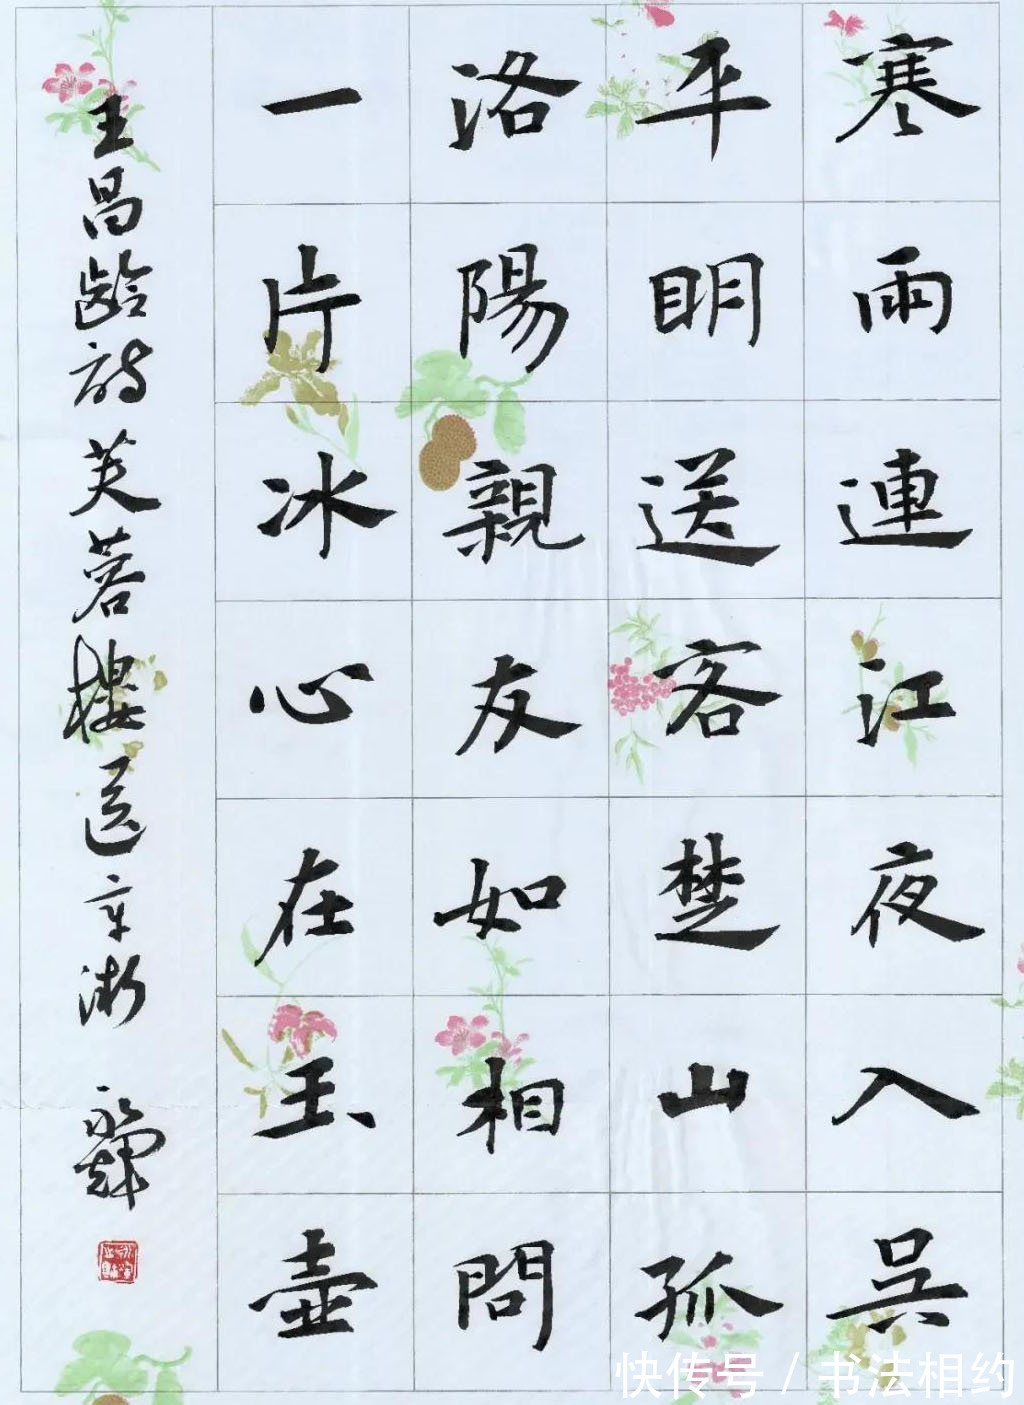 寒雨連江夜入吳
平明送客楚山孤
洛陽親友如相問
一片冰心在玉壺
王昌齡詩芙蓉樓送辛漸
快传号/书法相约